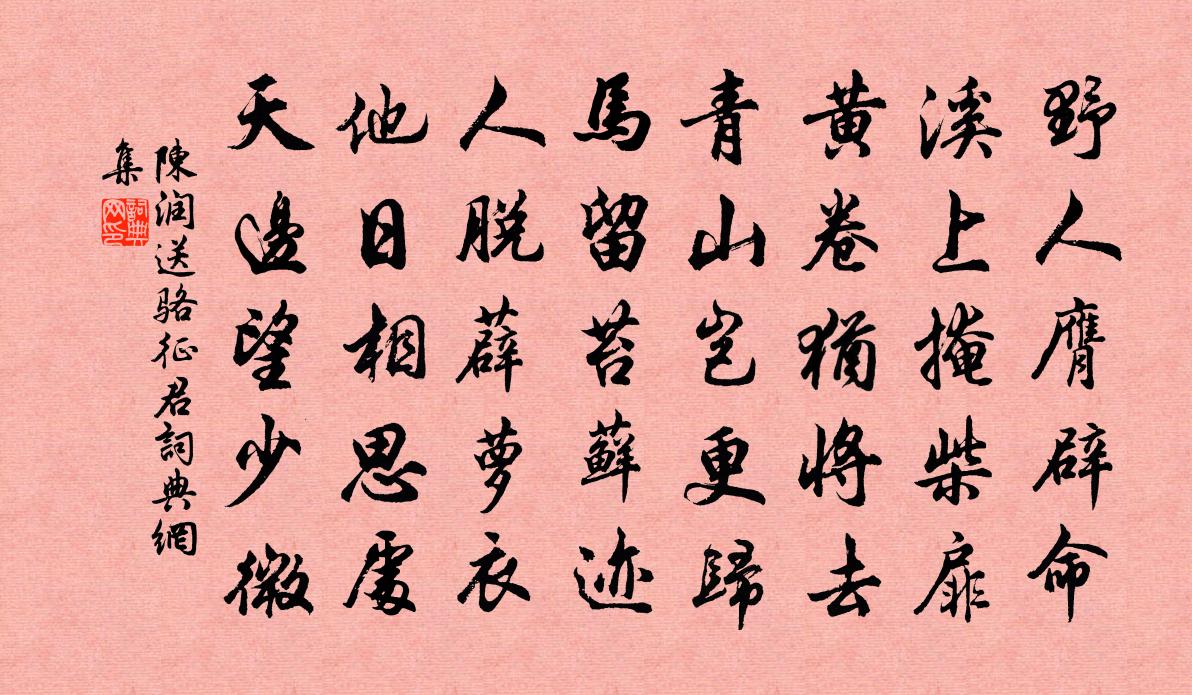 野人膺辟命
溪上掩柴扉
黄卷猶將去
青山豈更歸
馬留苔蘚迹
人脱薜萝衣
他日相思處
天邊望少微
陳润送骆征君詞典網
集
詞典
网印